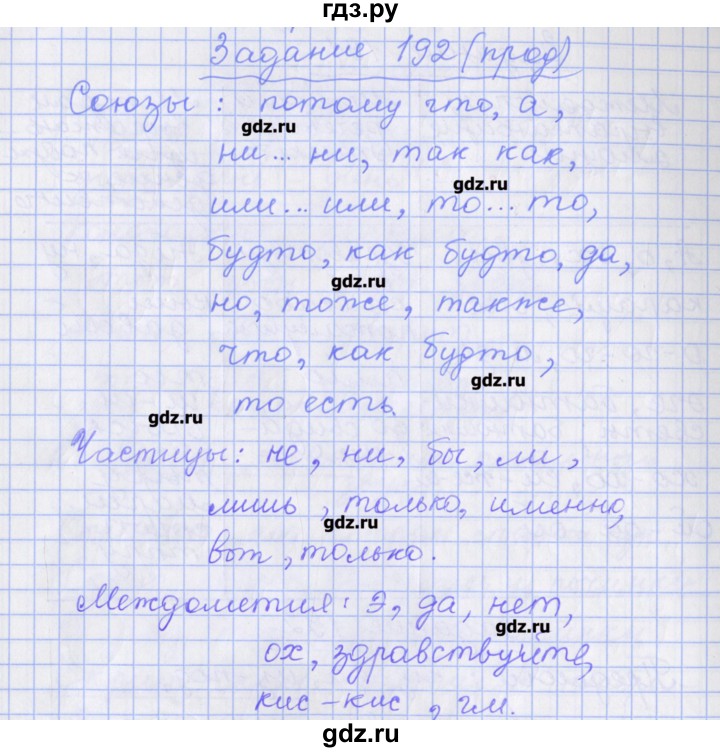 гдз.ру
Задание 192 (прод)
Союзы : потому что, а,
gdz.ru
ни... ни, так как,
gdz.ru
или... или, то... то,
будто, как будто, да,
gdz.ru
но, тоже, также,
что, как будто,
gdz.ru
то есть.
gdz.ru
Частицы: не, ни, бы, ли,
лишь, только, именно,
gdz.ru
вот, только.
Междометия: Э, да, нет,
gdz.ru
ох, здравствуйте,
кис-кис, гм.
gdz.ru